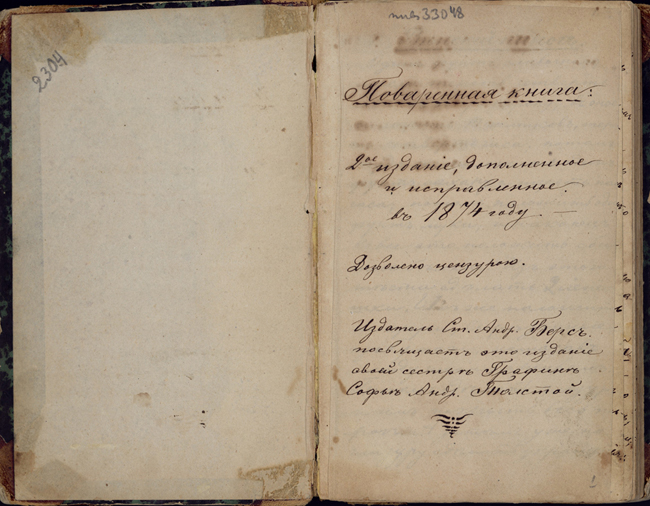 2304
Поваренная книга:
2ое изданіе, дополненное
и исправленное.
въ 1874 году. —
Дозволено цензурою.
Издатель Ст. Андр. Берсъ.
посвящаетъ это изданіе
своей сестрѣ Графинѣ
Софьѣ Андр. Толстой.
1